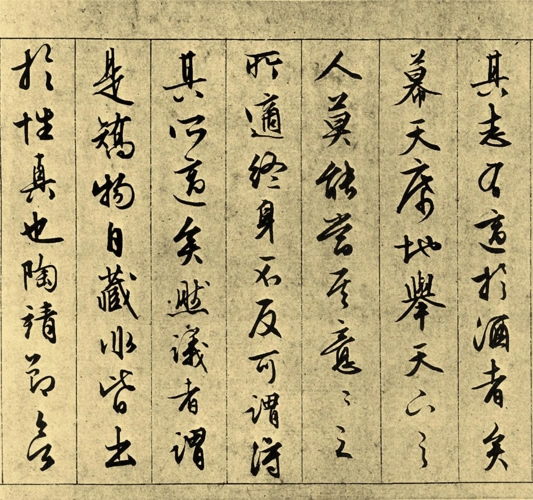 其志有適於酒者矣
幕天席地舉天下之
人莫能當其意〻之
所適終身不反可謂得
其所適矣然議者謂
是矯物自藏非皆出
於性真也陶靖節